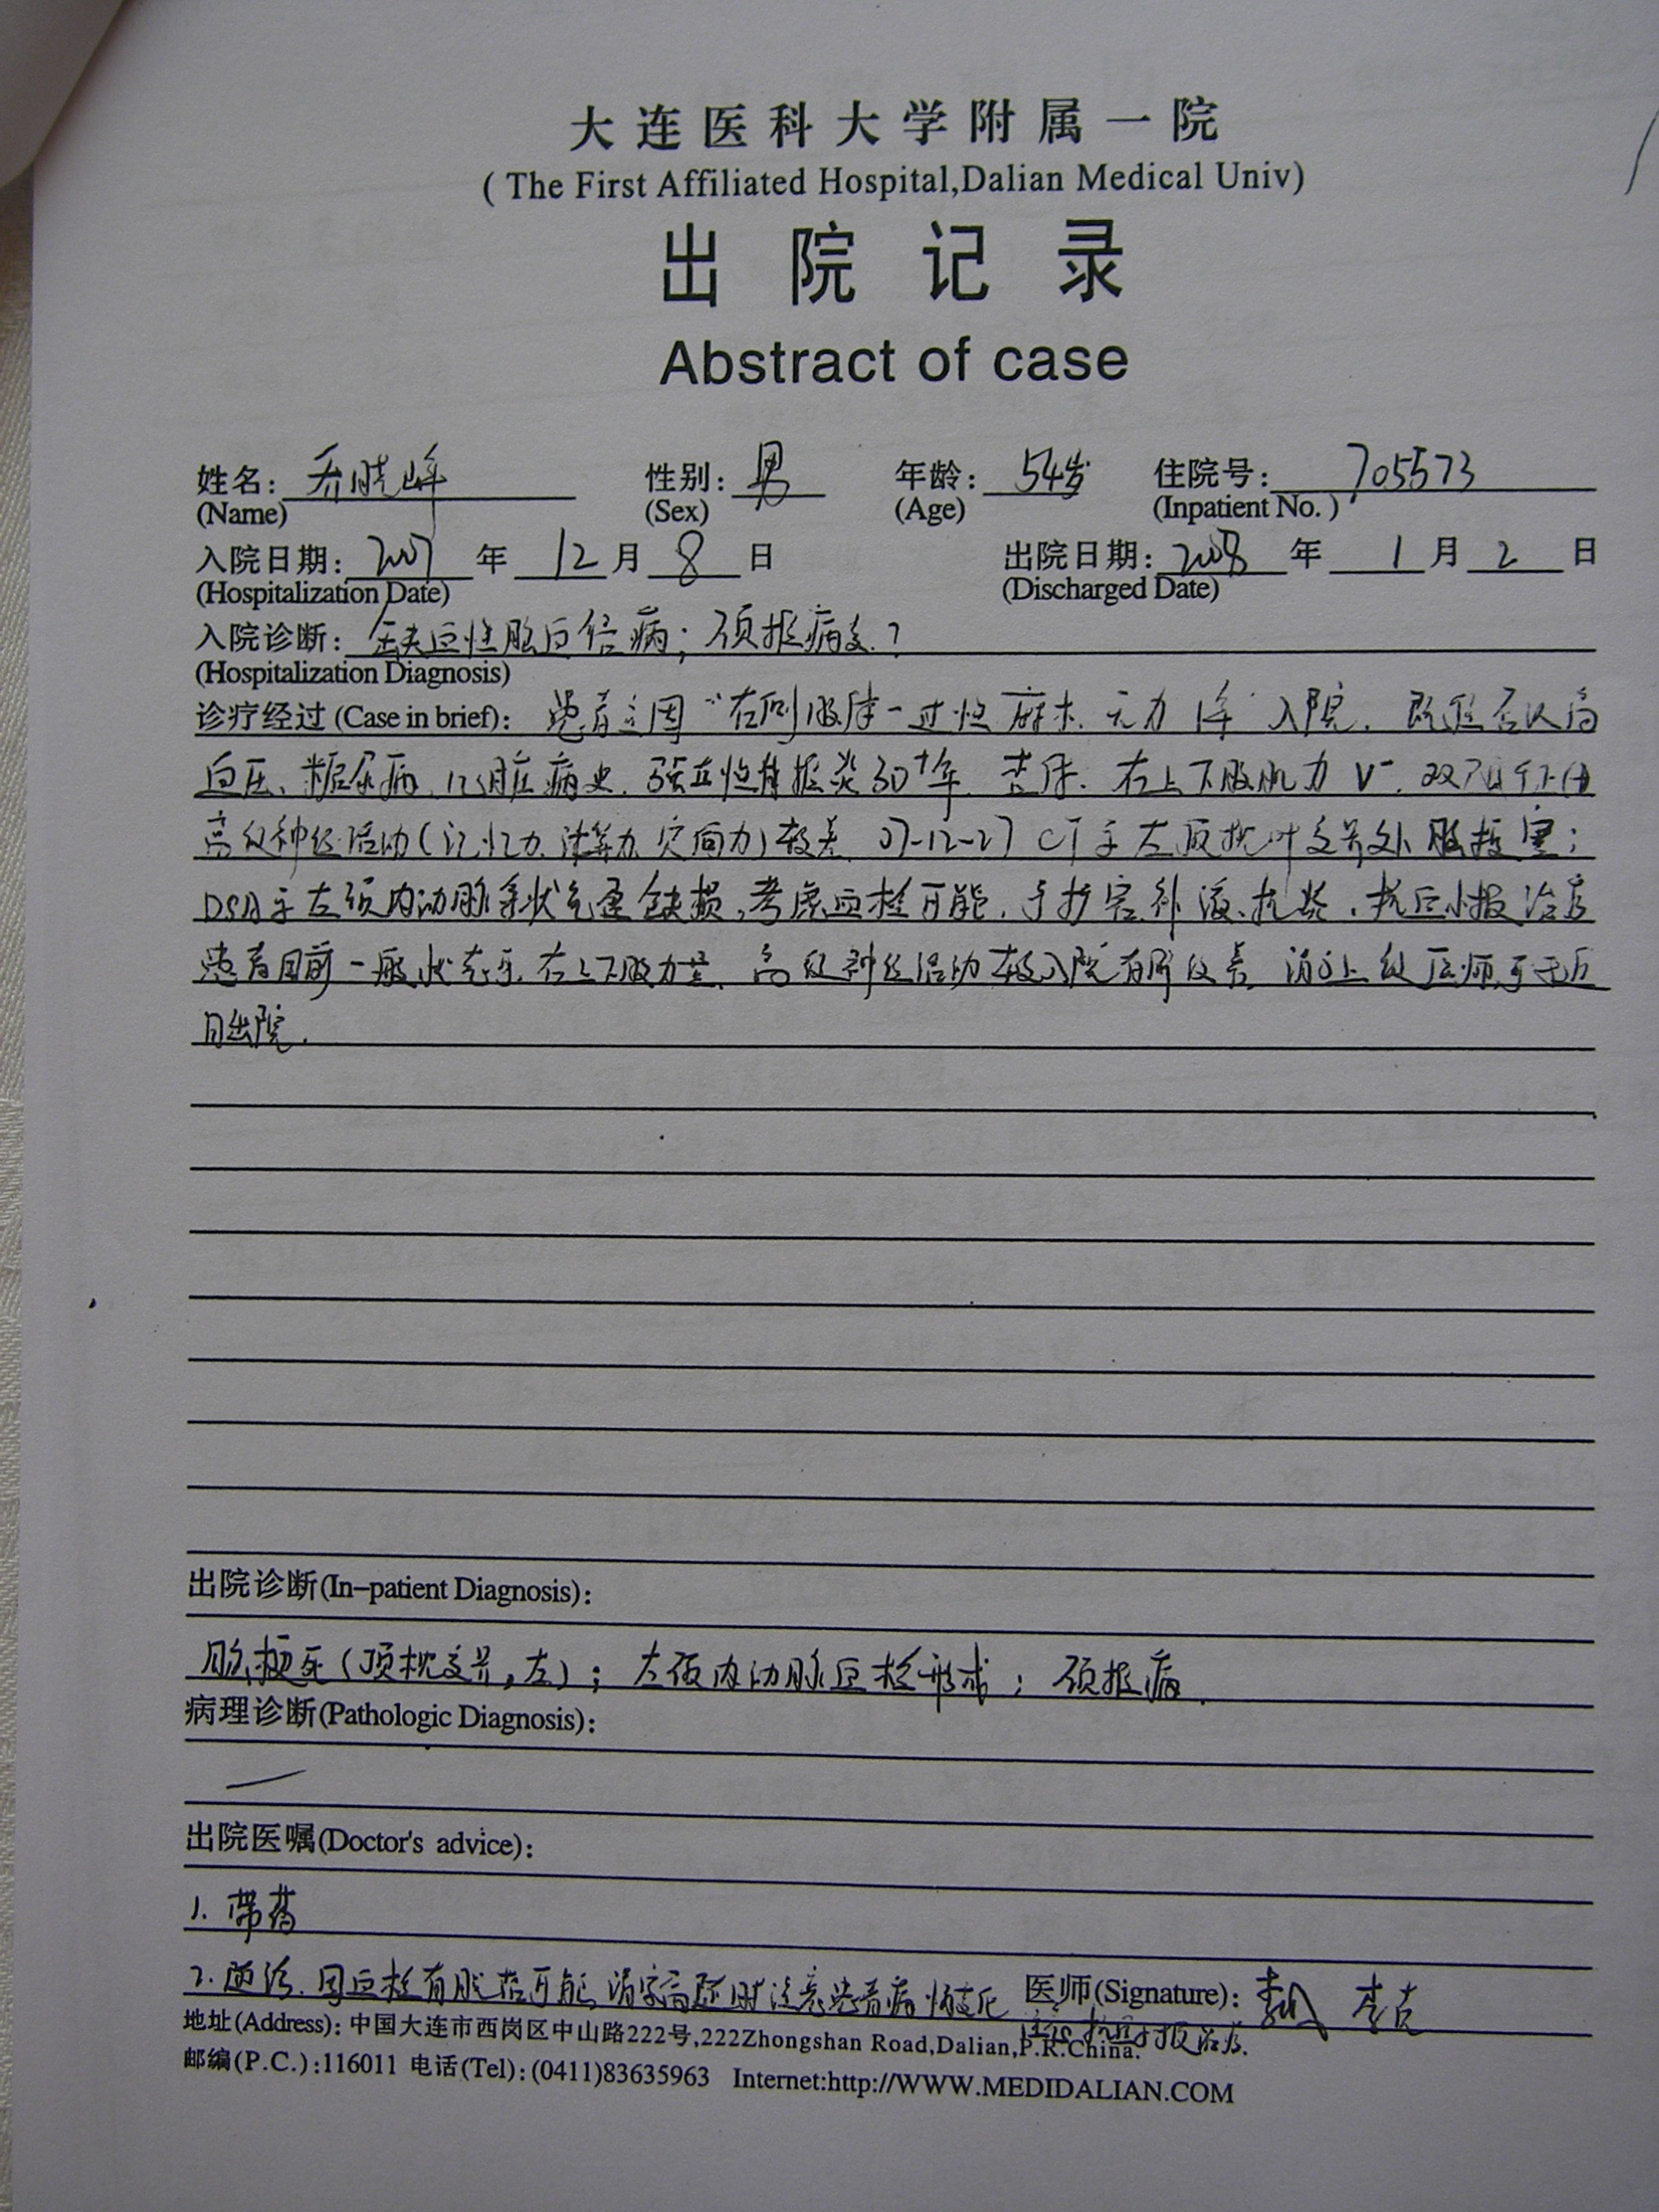 大连医科大学附属一院
( The First Affiliated Hospital,Dalian Medical Univ)
出院记录
Abstract of case
姓名: 乔晓峰 性别: 男 年龄: 54岁 住院号: 705573
(Name) (Sex) (Age) (Inpatient No. )
入院日期: 2007 年 12 月 8 日 出院日期: 2008 年 1 月 2 日
(Hospitalization Date) (Discharged Date)
入院诊断: 缺血性脑血管病; 颈椎病变?
(Hospitalization Diagnosis)
诊疗经过 (Case in brief): 患者主因"右侧肢体一过性麻木、无力1年"入院. 既往否认高
血压、糖尿病、心脏病史. 强直性脊椎炎30+年. 查体: 右上下肢肌力V-.
高级神经活动(记忆力、计算力、定向力)较差. 07-12-27 CT示左顶枕叶交界处脑梗塞;
DSA示左颈内动脉条状充盈缺损,考虑血栓可能. 予扩容、补液、抗炎、抗血小板治疗
患者目前一般状态可. 右上下肢力 高级神经活动较入院有所改善. 请示上级医师,可于近
日出院.
出院诊断(In-patient Diagnosis):
脑梗死(顶枕交界,左); 左颈内动脉血栓形成; 颈椎病.
病理诊断(Pathologic Diagnosis):
出院医嘱(Doctor's advice):
1. 带药
2. 随诊. 因血栓有脱落可能, 请家属随时注意患者病情变化 医师(Signature):
地址(Address): 中国大连市西岗区中山路222号,222Zhongshan Road,Dalian,P.R.China. 抗血小板治疗.
邮编(P.C.):116011 电话(Tel):(0411)83635963 Internet:http://WWW.MEDIDALIAN.COM